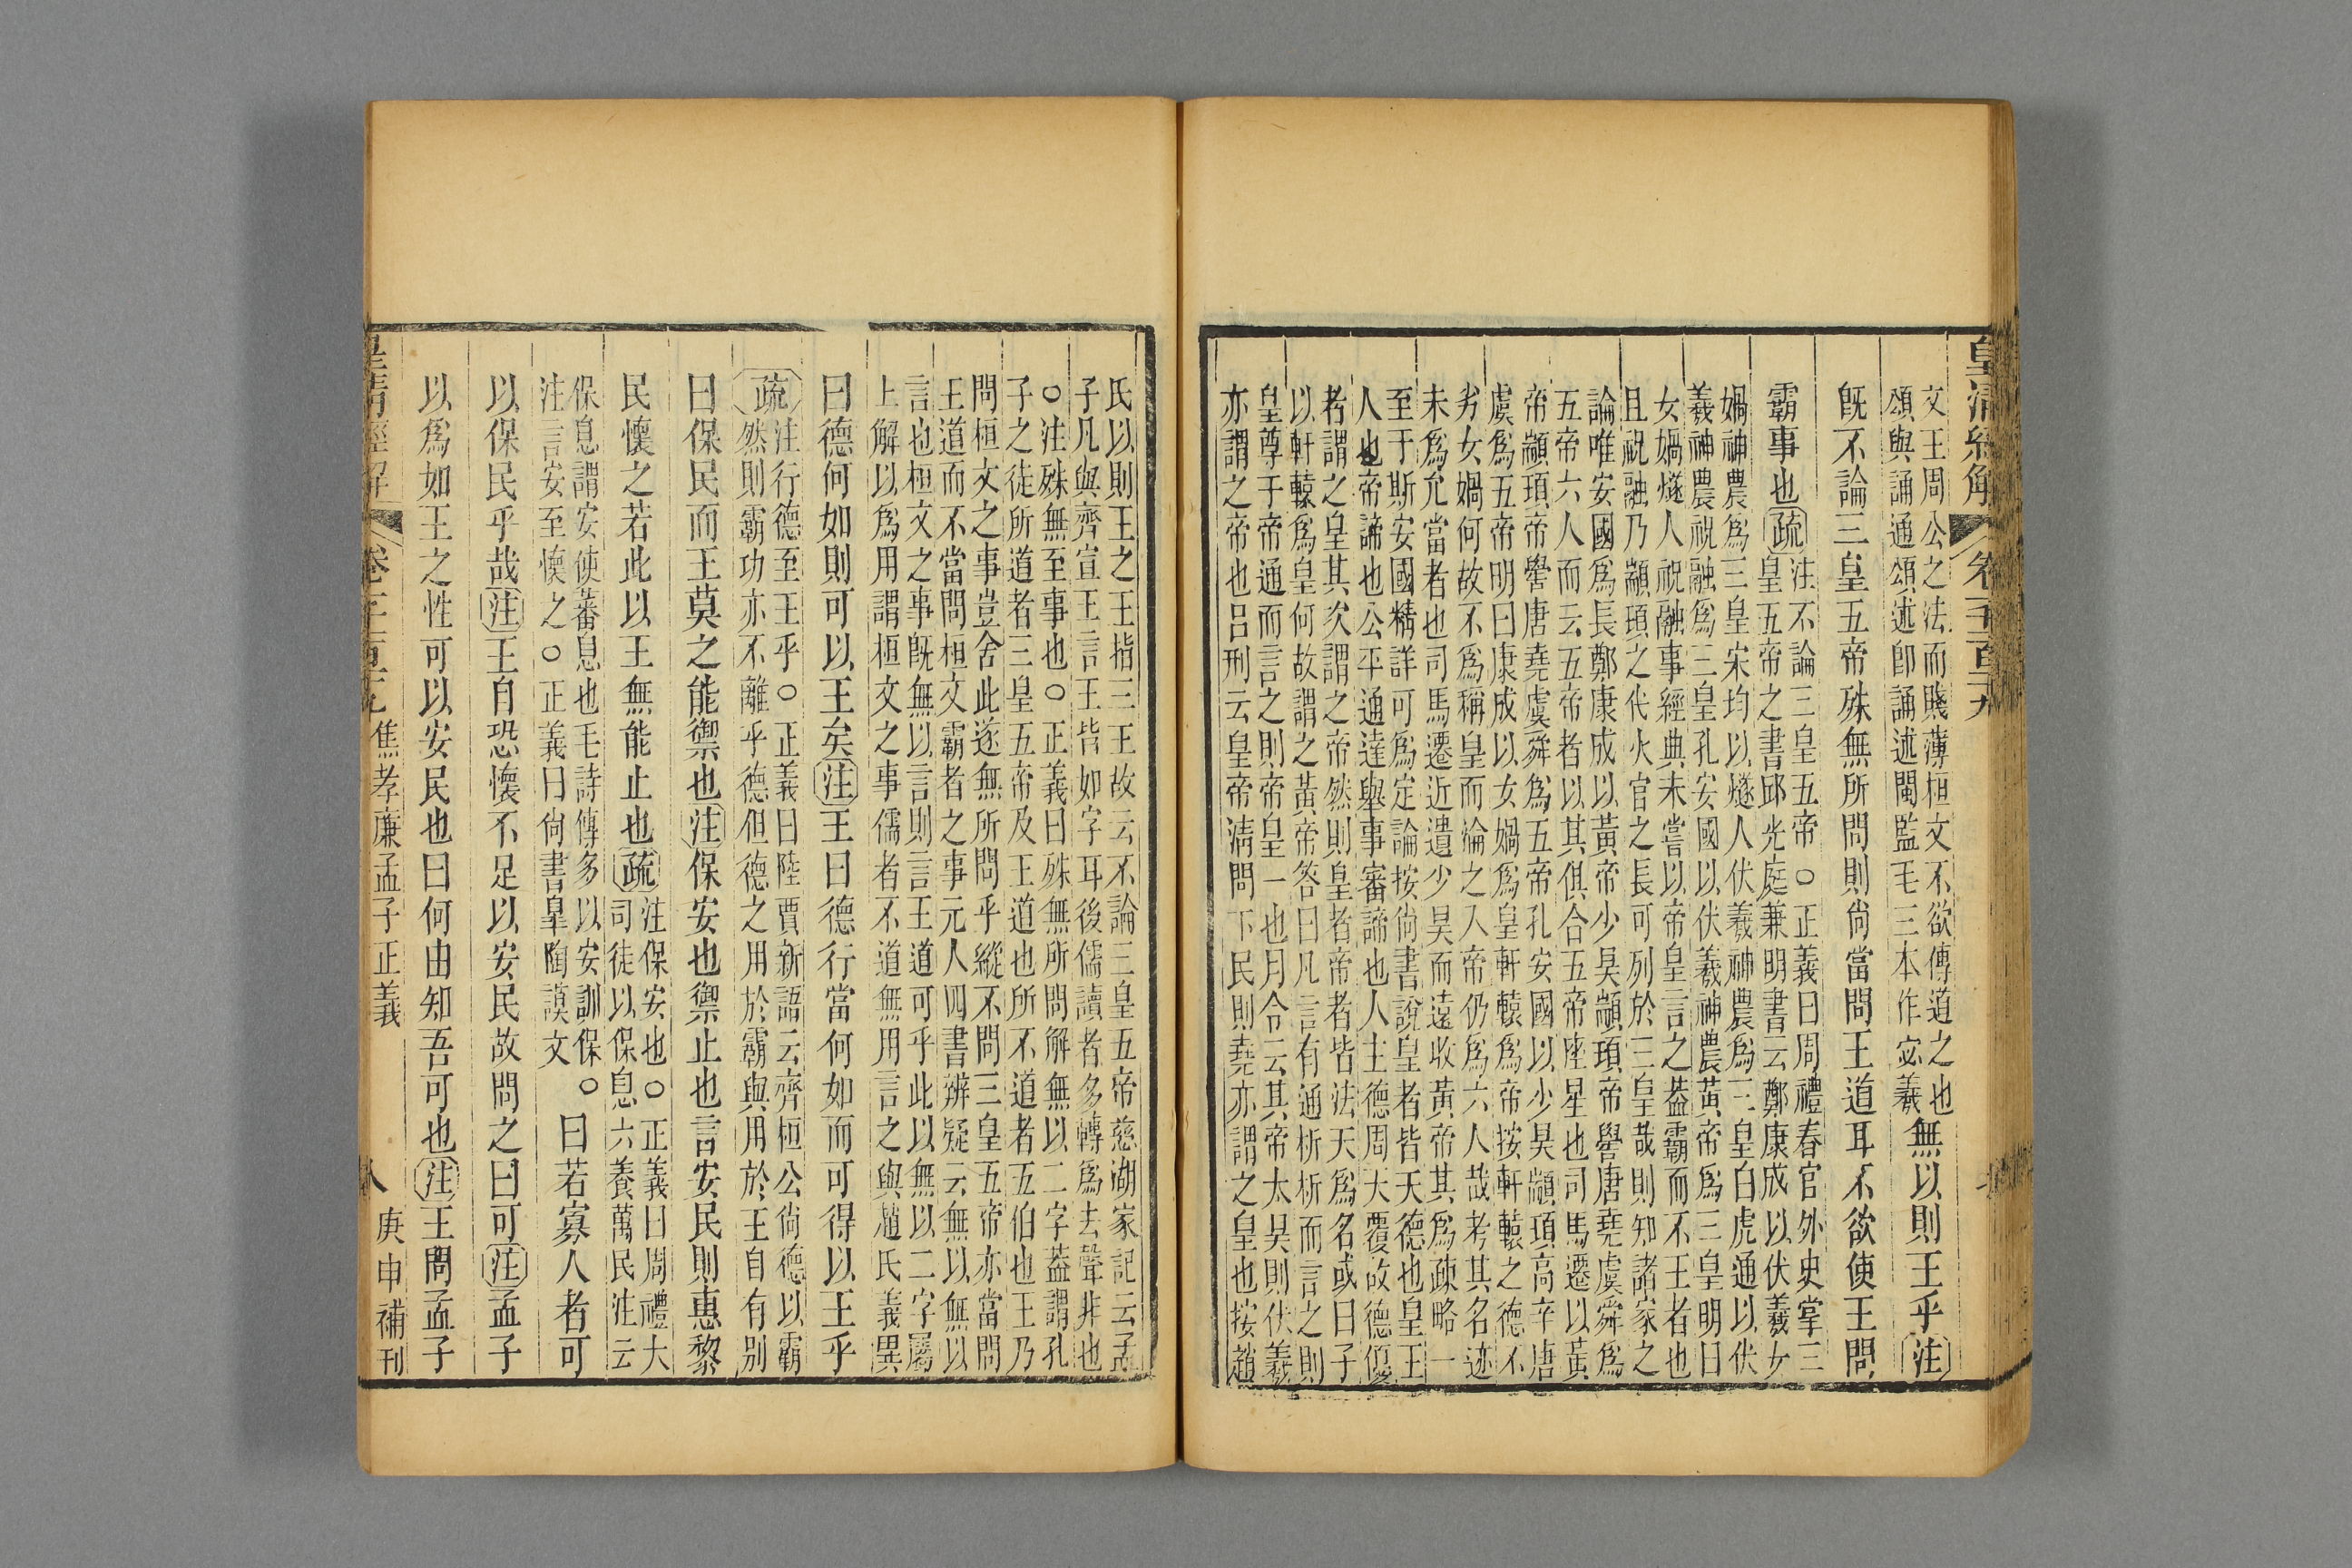 皇清經解
卷一千一百一十九
文王周公之法而賤薄桓文不欲傳道之也
頌與誦通頌述卽誦述閩監毛三本作宓羲
無以則王乎注
旣不論三皇五帝殊無所問則尚當問王道耳不欲使王問
霸事也疏
注不論三皇五帝○正義曰周禮春官外史掌三
皇五帝之書邱光庭兼明書云鄭康成以伏羲女
媧神農爲三皇宋均以燧人伏羲神農爲三皇白虎通以伏
羲神農祝融爲三皇孔安國以伏羲神農黃帝爲三皇明曰
女媧燧人祝融事經典未嘗以帝皇言之葢霸而不王者也
且祝融乃顓頊之代火官之長可列於三皇哉則知諸家之
論唯安國爲長鄭康成以黃帝少昊顓頊帝嚳唐堯虞舜爲
五帝六人而云五帝者以其俱合五帝座星也司馬遷以黃
帝顓頊帝嚳唐堯虞舜爲五帝孔安國以少昊顓頊高辛唐
虞爲五帝明曰康成以女媧爲皇軒轅爲帝按軒轅之德不
劣女媧何故不爲稱皇而淪之入帝仍爲六人哉考其名迹
未爲允當者也司馬遷近遺少昊而遠收黃帝其爲疎略一
至于斯安國精詳可爲定論按尚書說皇者皆天德也皇王
人也帝諦也公平通達舉事審諦也人主德周天覆故德優
者謂之皇其次謂之帝然則皇者帝者皆法天爲名或曰子
以軒轅爲皇何故謂之黃帝答曰凡言有通析析而言之則
皇尊于帝通而言之則帝皇一也月令云其帝太昊則伏羲
亦謂之帝也呂刑云皇帝淸問下民則堯亦謂之皇也按趙
氏以則王之王指三王故云不論三皇五帝慈湖家記云孟
子凡與齊宣王言王皆如字耳後儒讀者多轉爲去聲非也
○注殊無至事也○正義曰殊無所問解無以二字葢謂孔
子之徒所道者三皇五帝及王道也所不道者五伯也王乃
問桓文之事豈舍此遂無所問乎縱不問三皇五帝亦當問
王道而不當問桓文霸者之事元人四書辨疑云無以無以
言也桓文之事旣無以言則言王道可乎此以無以二字屬
上解以爲用謂桓文之事儒者不道無用言之與趙氏義異
曰德何如則可以王矣注王曰德行當何如而可得以王乎
疏
注行德至王乎○正義曰陸賈新語云齊桓公尚德以霸
然則霸功亦不離乎德但德之用於霸與用於王自有别
曰保民而王莫之能禦也注保安也禦止也言安民則惠黎
民懷之若此以王無能止也疏
注保安也○正義曰周禮大
司徒以保息六養萬民注云
保息謂安使蕃息也毛詩傳多以安訓保○
注言安至懷之○正義曰尙書皋陶謨文
曰若寡人者可
以保民乎哉注王自恐懷不足以安民故問之曰可注孟子
以爲如王之性可以安民也曰何由知吾可也注王問孟子
皇清經解
焦孝廉孟子正義
八
庚申補刊